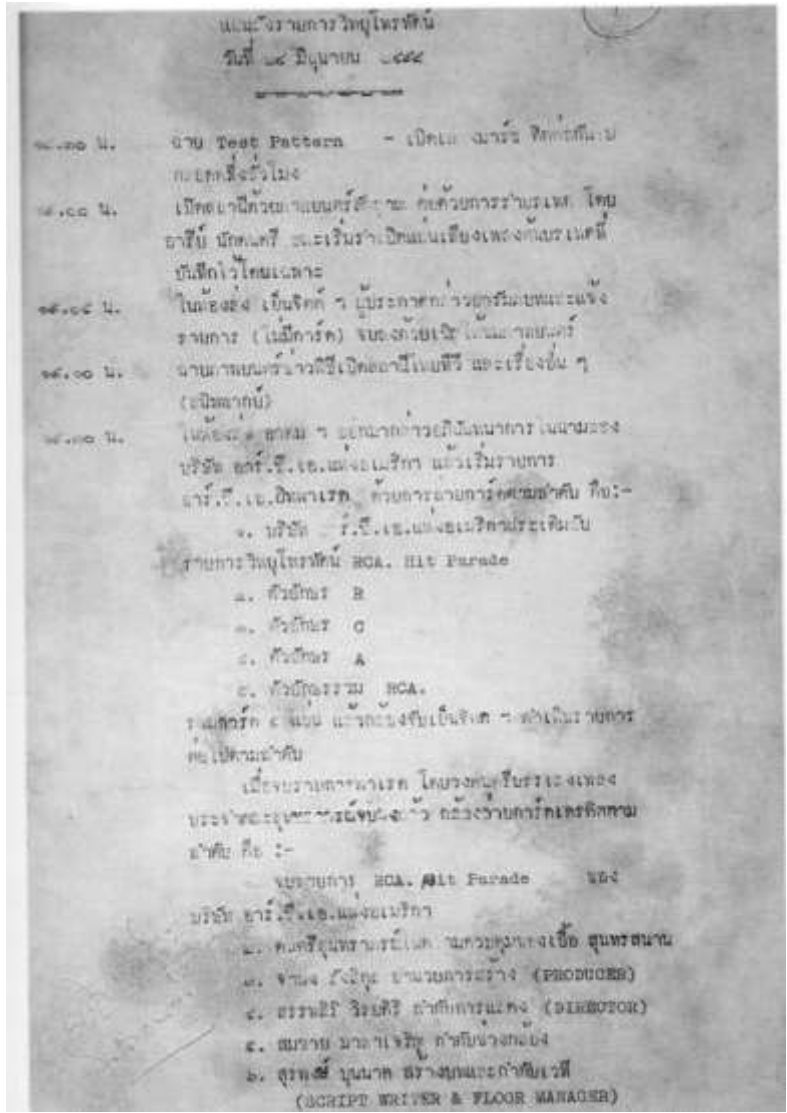 แผนผังรายการวิทยุโทรทัศน์
วันที่ ๒๔ มิถุนายน ๒๔๙๘
น. ฉาย Test Pattern - เปิดเพลงมาร์ช ติดต่อกันไป
ตลอดครึ่งชั่วโมง
น. เปิดสถานีด้วยภาพยนตร์ ต่อด้วยการรำบรเทศ โดย
อารีย์ นักดนตรี และเริ่มรำเปิดแผ่นเสียงเพลงต้นบรเทศที่
บันทึกไว้โดยเฉพาะ
น. ในห้องส่ง เย็นจิตต์ ฯ ผู้ประกาศกล่าว และแจ้ง
รายการ (ไม่มีการ์ด) จบลงด้วย
น. ฉายภาพยนตร์ข่าวพิธีเปิดสถานีไทยทีวี และเรื่องอื่น ๆ
น. ในห้องส่ง อาคม ฯ ออกมากล่าวอภินันทนาการในนามของ
บริษัท อาร์.ซี.เอ.แห่งอเมริกา แล้วเริ่มรายการ
อาร์.ซี.เอ.ฮิทพาเรด ด้วยการฉายการ์ดตามลำดับ คือ:-
๑. บริษัท อาร์.ซี.เอ.แห่งอเมริกาประเดิมกับ
รายการวิทยุโทรทัศน์ RCA. Hit Parade
๒. ตัวอักษร R
๓. ตัวอักษร C
๔. ตัวอักษร A
๕. ตัวอักษรรวม RCA.
รวมการ์ด ๕ แผ่น แล้วกล้องจับเย็นจิตต์ ฯ ดำเนินรายการ
ต่อไปตามลำดับ
เมื่อจบรายการพาเรด โดยวงดนตรีบรรเลงเพลง
ประจำคณะสุนทราภรณ์จบลงแล้ว กล้องฉายการ์ดเครดิตตาม
ลำดับ คือ :-
จบรายการ RCA. Hit Parade ของ
บริษัท อาร์.ซี.เอ.แห่งอเมริกา
๒. ดนตรีสุนทราภรณ์ในความควบคุมของเอื้อ สุนทรสนาน
๓. จำนง รังสิกุล อำนวยการสร้าง (PRODUCER)
๔. สรรพสิริ วิรยศิริ กำกับการแสดง (DIRECTOR)
๕. สมชาย มาลาเจริญ กำกับช่างกล้อง
๖. สุรพงษ์ บุนนาค สร้างบทและกำกับเวที
(SCRIPT WRITER & FLOOR MANAGER)